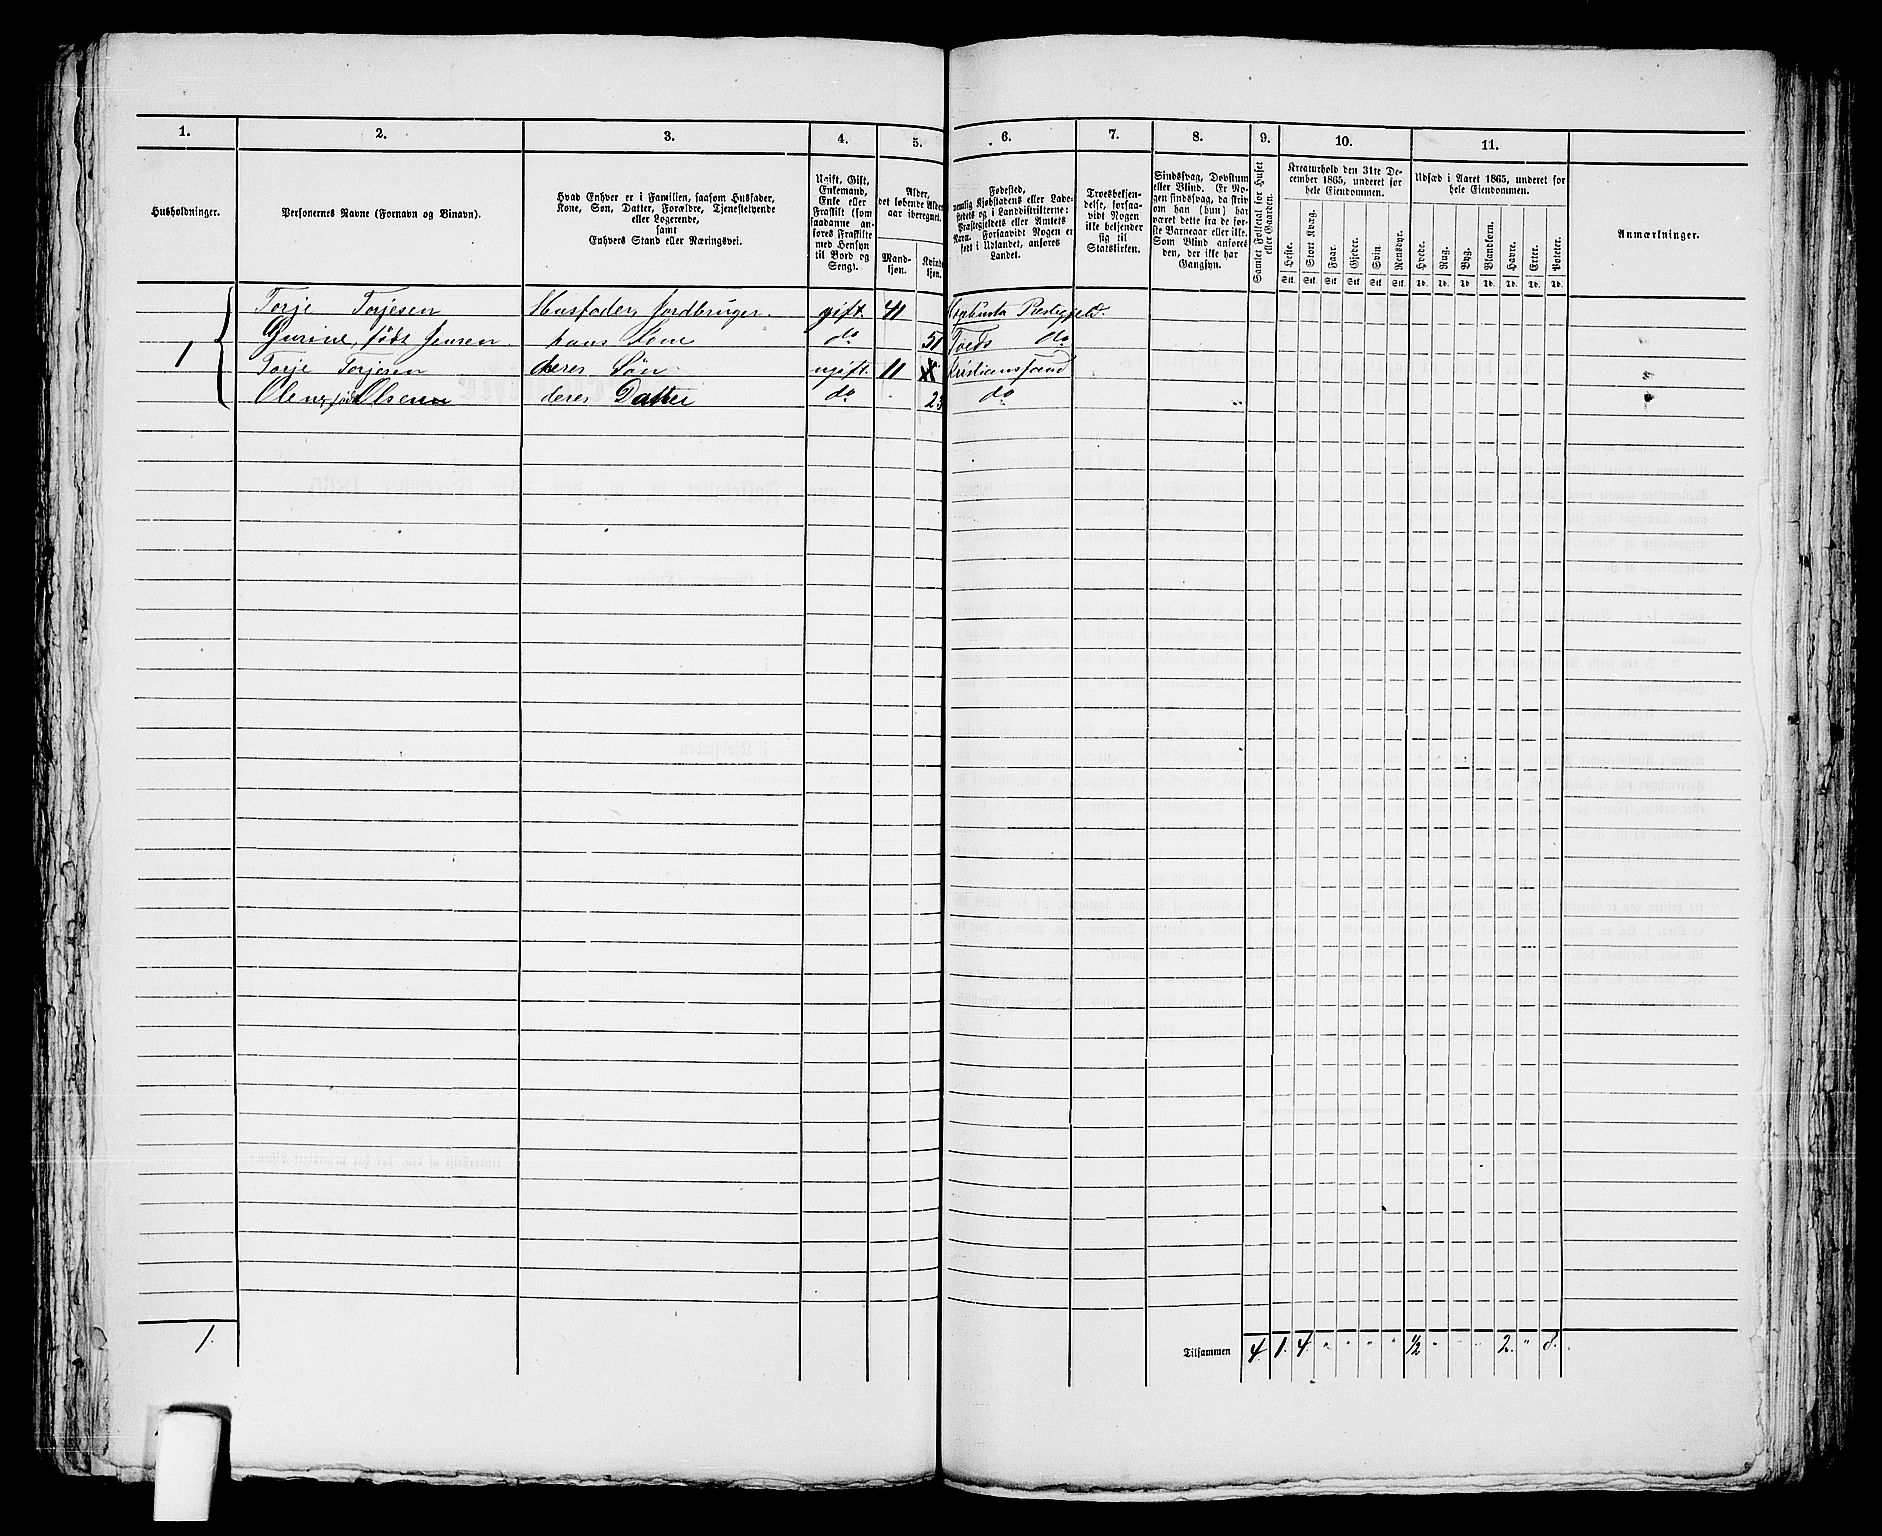 1. 2. 3. 4. 5. 6. 7. 8. 9. 10. 11.
Husholdninger.
Personernes Navne (Fornavn og Binavn).
Hvad Enhver er i Familien, saasom Husfader,
Kone, Søn, Datter, Forældre, Tjenestetyende
eller Logerende,
samt
Enhvers Stand eller Næringsvei.
Ugift, Gift,
Enkemand,
Enke eller
Fraskilt (som
saadanne an-
føres Fraskilte
med Hensyn
til Bord og
Seng).
Alder,
det løbende Alders-
aar iberegnet.
Mand-
kjøn.
Kvinde-
kjøn.
Fødested,
nemlig Kjøbstadens eller Lade-
stedets og i Landdistrikterne:
Præstegjeldets eller Amtets
Navn. Forsaavidt Nogen er
født i Udlandet, anføres
Landet.
Troesbekjen-
delse, forsaa-
vidt Nogen
ikke bekjender
sig til
Statskirken.
Sindssvag, Døvstum
eller Blind. Er No-
gen sindssvag, da skriv
om han (hun) har
været dette fra de før-
ste Barneaar eller ikke.
Som Blind anføres
den, der ikke har
Gangsyn.
Samlet Folketal for Huset
eller Gaarden.
Kreaturhold den 31te De-
cember 1865, underet for
hele Eiendommen.
Heste. Stort Kvæg. Faar. Gjeder. Svin Rensdyr.
Stk. Stk. Stk. Stk. Stk. Stk.
Udsæd i Aaret 1865, underet for
hele Eiendommen.
Hvede. Rug. Byg. Blandkorn. Havre. Erter. Poteter.
Td. Td. Td. Td. Td. Td. Td.
Anmærkninger.
Torje Torjesen Husfader, Jordbruger. gift. 41
1 Gurine, født Jensen. hans Kone do 51 do
Torje Torjesen deres Søn. ugift. 11 Kristianssand
Olsen deres Datter do do
1. Tilsammen 4 1. 4. " " " " 1/2 " " " 2. " 8.